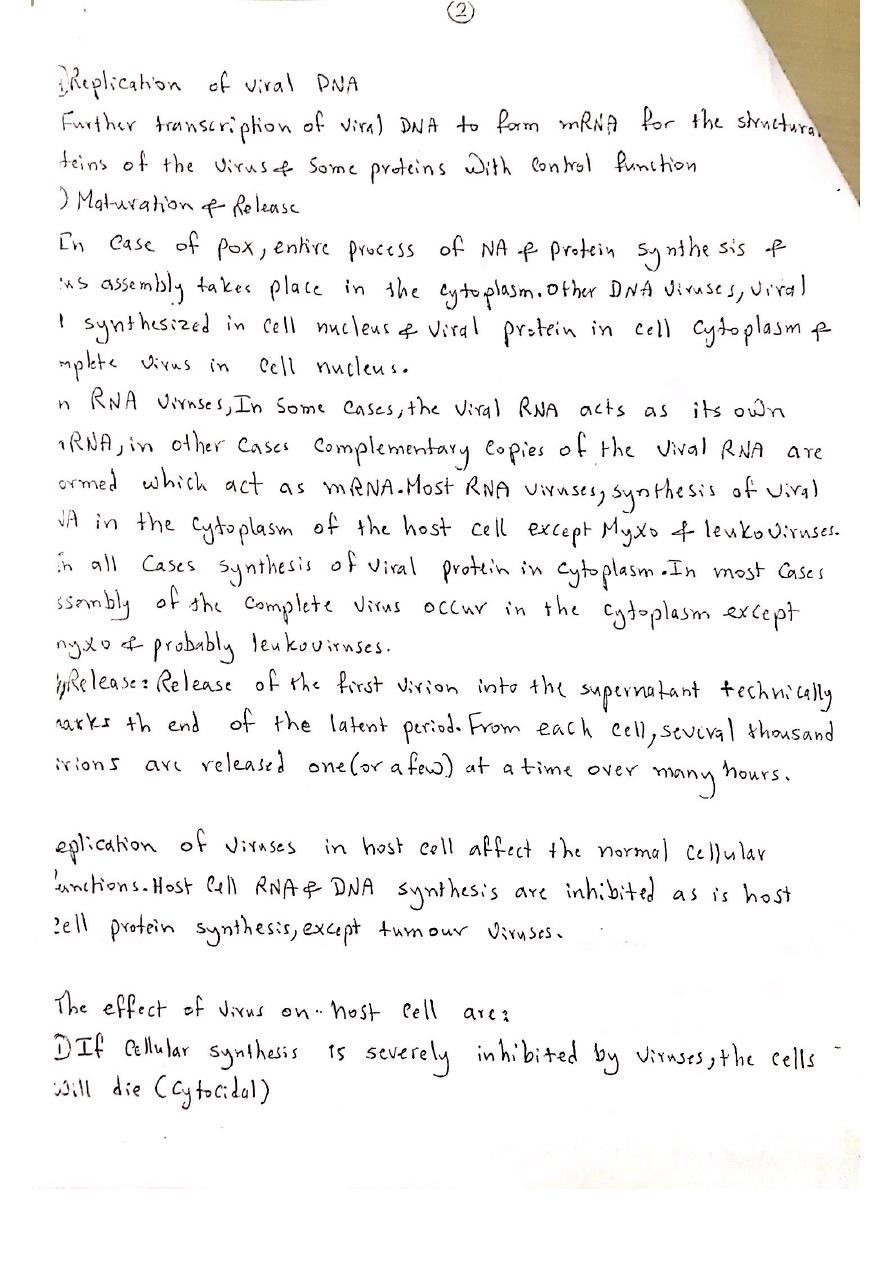 2
)Replication of viral DNA
Further transcription of viral DNA to form mRNA for the structura
teins of the virus & Some proteins with Control function
) Maturation & Release
In Case of pox, entire process of NA & protein synthesis &
us assembly takes place in the cytoplasm. Other DNA viruses, viral
synthesized in cell nucleus & viral protein in cell cytoplasm &
mplete virus in cell nucleus.
n RNA viruses, In Some Cases, the viral RNA acts as its own
RNA, in other cases Complementary Copies of the viral RNA are
ormed which act as mRNA. Most RNA viruses, synthesis of viral
NA in the cytoplasm of the host cell except Myxo & leukoviruses.
In all Cases synthesis of viral protein in cytoplasm. In most Cases
ssembly of the complete virus occur in the cytoplasm except
myxo & probably leukoviruses.
)Release: Release of the first virion into the supernatant technically
marks th end of the latent period. From each cell, several thousand
irions are released one (or a few) at a time over many hours.
eplication of viruses in host cell affect the normal cellular
functions. Host Cell RNA & DNA synthesis are inhibited as is host
cell protein synthesis, except tumour viruses.
The effect of virus on host cell are:
1) If Cellular synthesis is severely inhibited by viruses, the cells
will die (Cytocidal)